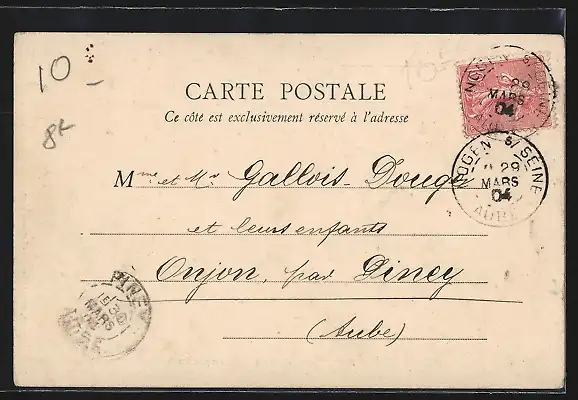 10
8
CARTE POSTALE
Ce côté est exclusivement réservé à l'adresse
NOGEN S/ SEINE
29
MARS
04
NOGENT S/ SEINE
29
MARS
04
AUBE
Mme et Mr Gallois-Douge
et leurs enfants
Onjon, par Piney
(Aube)
PINEY
30
MARS
04
AUBE